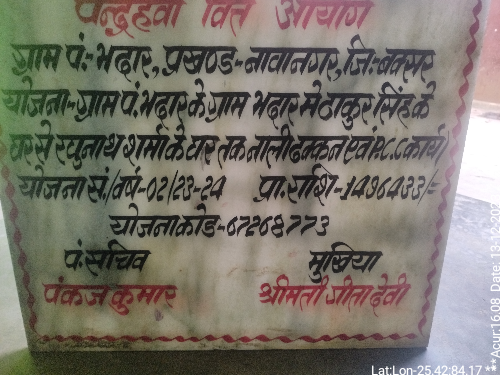 पन्द्रहवीं वित्त आयोग
ग्राम पं:- भदार, प्रखण्ड- नावानगर, जि:- बक्सर
योजना- ग्राम पं. भदार के ग्राम भदार मे ठाकुर सिंह के
घर से रघुनाथ शर्मा के घर तक नाली ढक्कन एवं P.C.C कार्य
योजना सं./वर्ष- 02/23-24 प्रा. राशि- 1496433/-
योजना कोड- 67268773
पं. सचिव मुखिया
पंकज कुमार श्रीमती गीता देवी
Lat:Lon-25.42:84.17
**Acur:16.08 Date: 13